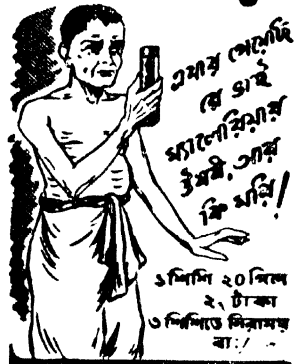 এবার পেয়েছি
রে ভাই
ম্যালেরিয়ার
ঔষধ, আর
কি মরি!
১ শিশি ২০ পিল
২৲ টাকা
৩ শিশিতে নিরাময়